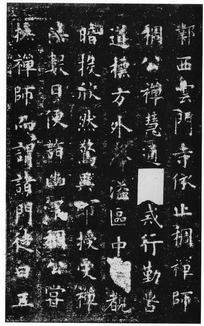 鄴西雲門寺依止稠禪師
稠公禪慧通戒行勤苦
道標方外聲溢區中
投欣然驚異即授受禪
法數日便詣幽深稠公嘗
撫禪師而謂諸門徒曰五